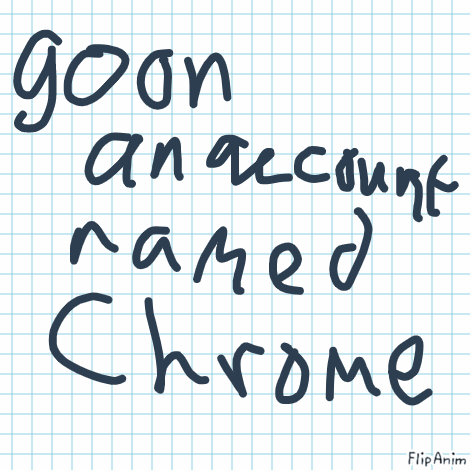 goon
an aecount
named
Chrome
FlipAnim